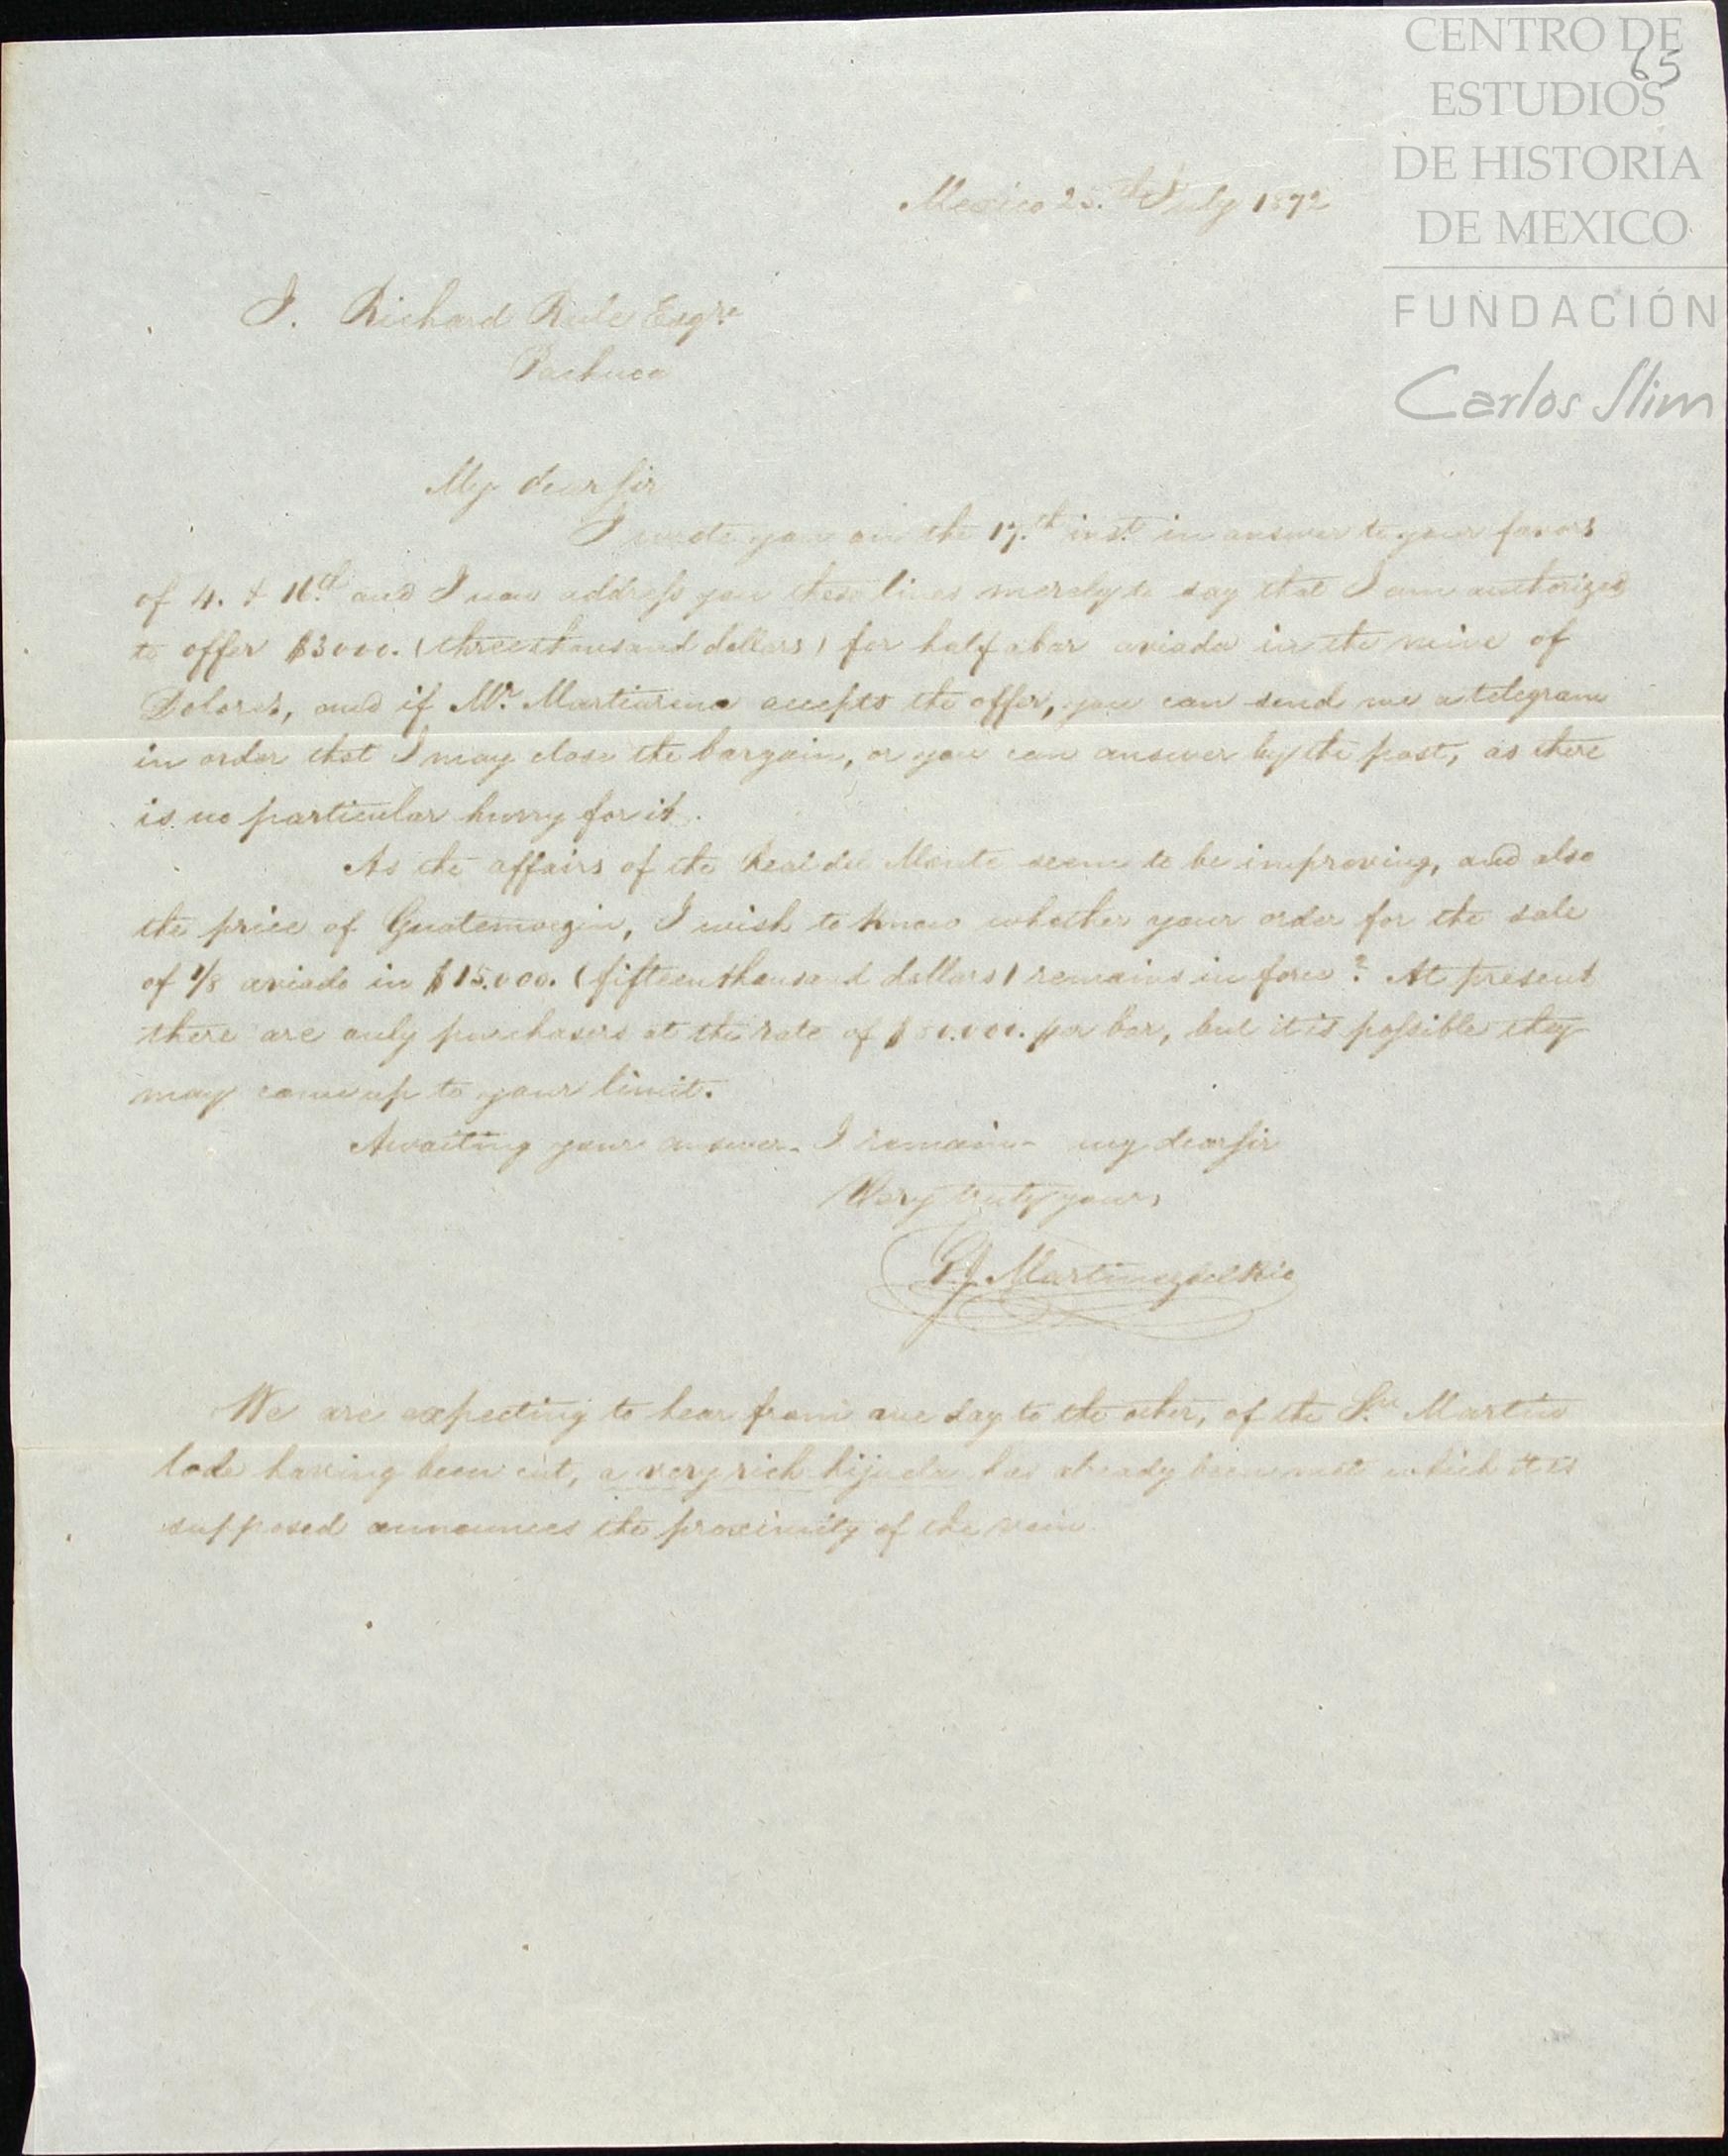 CENTRO DE
ESTUDIOS
DE HISTORIA
DE MEXICO
FUNDACIÓN
Carlos Slim
65
Mexico 25.th July 1872
J. Richard Rule Esqre
Pachuca
My dear Sir
I wrote you on the 17.th inst. in answer to your favors
of 4. & 11.th and I now address you these lines merely to say that I am authorized
to offer $3000. (three thousand dollars) for half a bar aviada in the mine of
Dolores, and if Mr. Martiarena accepts the offer, you can send me a telegram
in order that I may close the bargain, or you can answer by the post, as there
is no particular hurry for it.
As the affairs of the Real del Monte seem to be improving, and also
the price of Guatemozin, I wish to know whether your order for the sale
of 1/8 aviado in $15.000. (fifteen thousand dollars) remains in force? At present
there are only purchasers at the rate of per bar, but it is possible they
may come up to your limit.
Awaiting your answer. I remain my dear Sir
Very truly yours
Martinez del Rio
We are expecting to hear from one day to the other, of the Sn. Martin
lode having been cut, a very rich hijuela has already been met which it is
supposed announces the proximity of the vein.